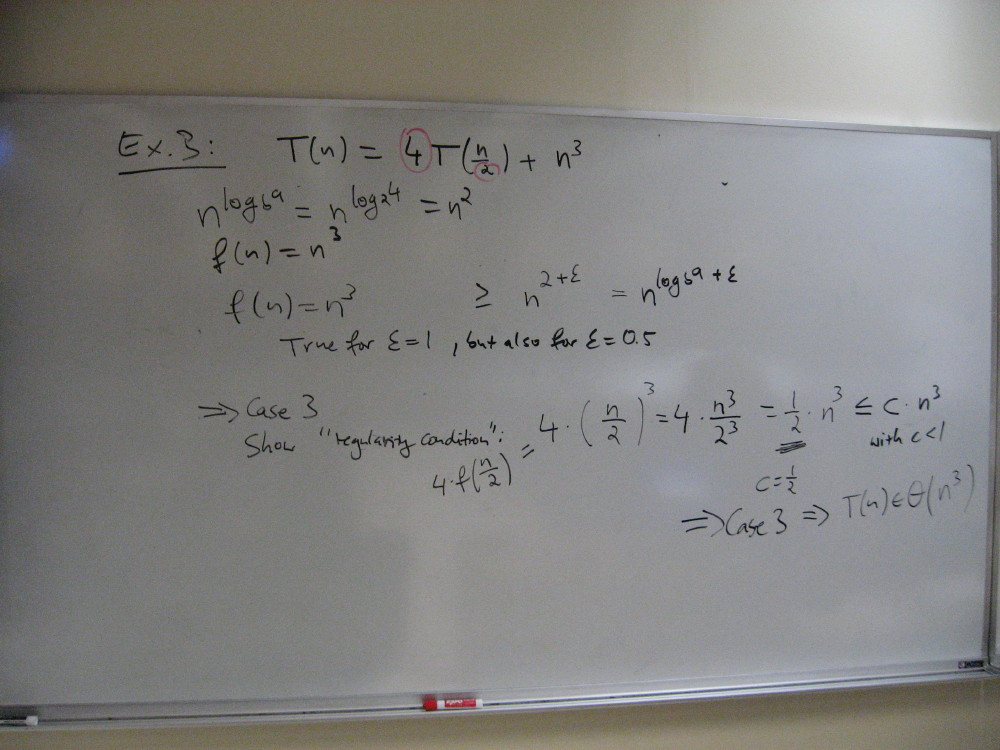 Ex. 3: T(n) = 4 T(n/2) + n³
n^(log_b a) = n^(log_2 4) = n²
f(n) = n³
f(n) = n³ ≥ n^(2+ε) = n^(log_b a + ε)
True for ε = 1, but also for ε = 0.5
⇒ Case 3
Show "regularity condition":
4·f(n/2) = 4·(n/2)³ = 4·n³/2³ = 1/2·n³ ≤ c·n³
with c<1
c = 1/2
⇒ Case 3 ⇒ T(n) ∈ Θ(n³)